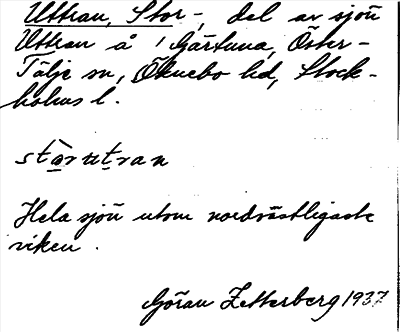 Uttran, Stor-, del av sjön
Uttran å Gärtuna, Öster-
Tälje sn, Öknebo hd, Stock-
holms l.
Hela sjön utom nordvästligaste
viken.
Göran Zetterberg 1937